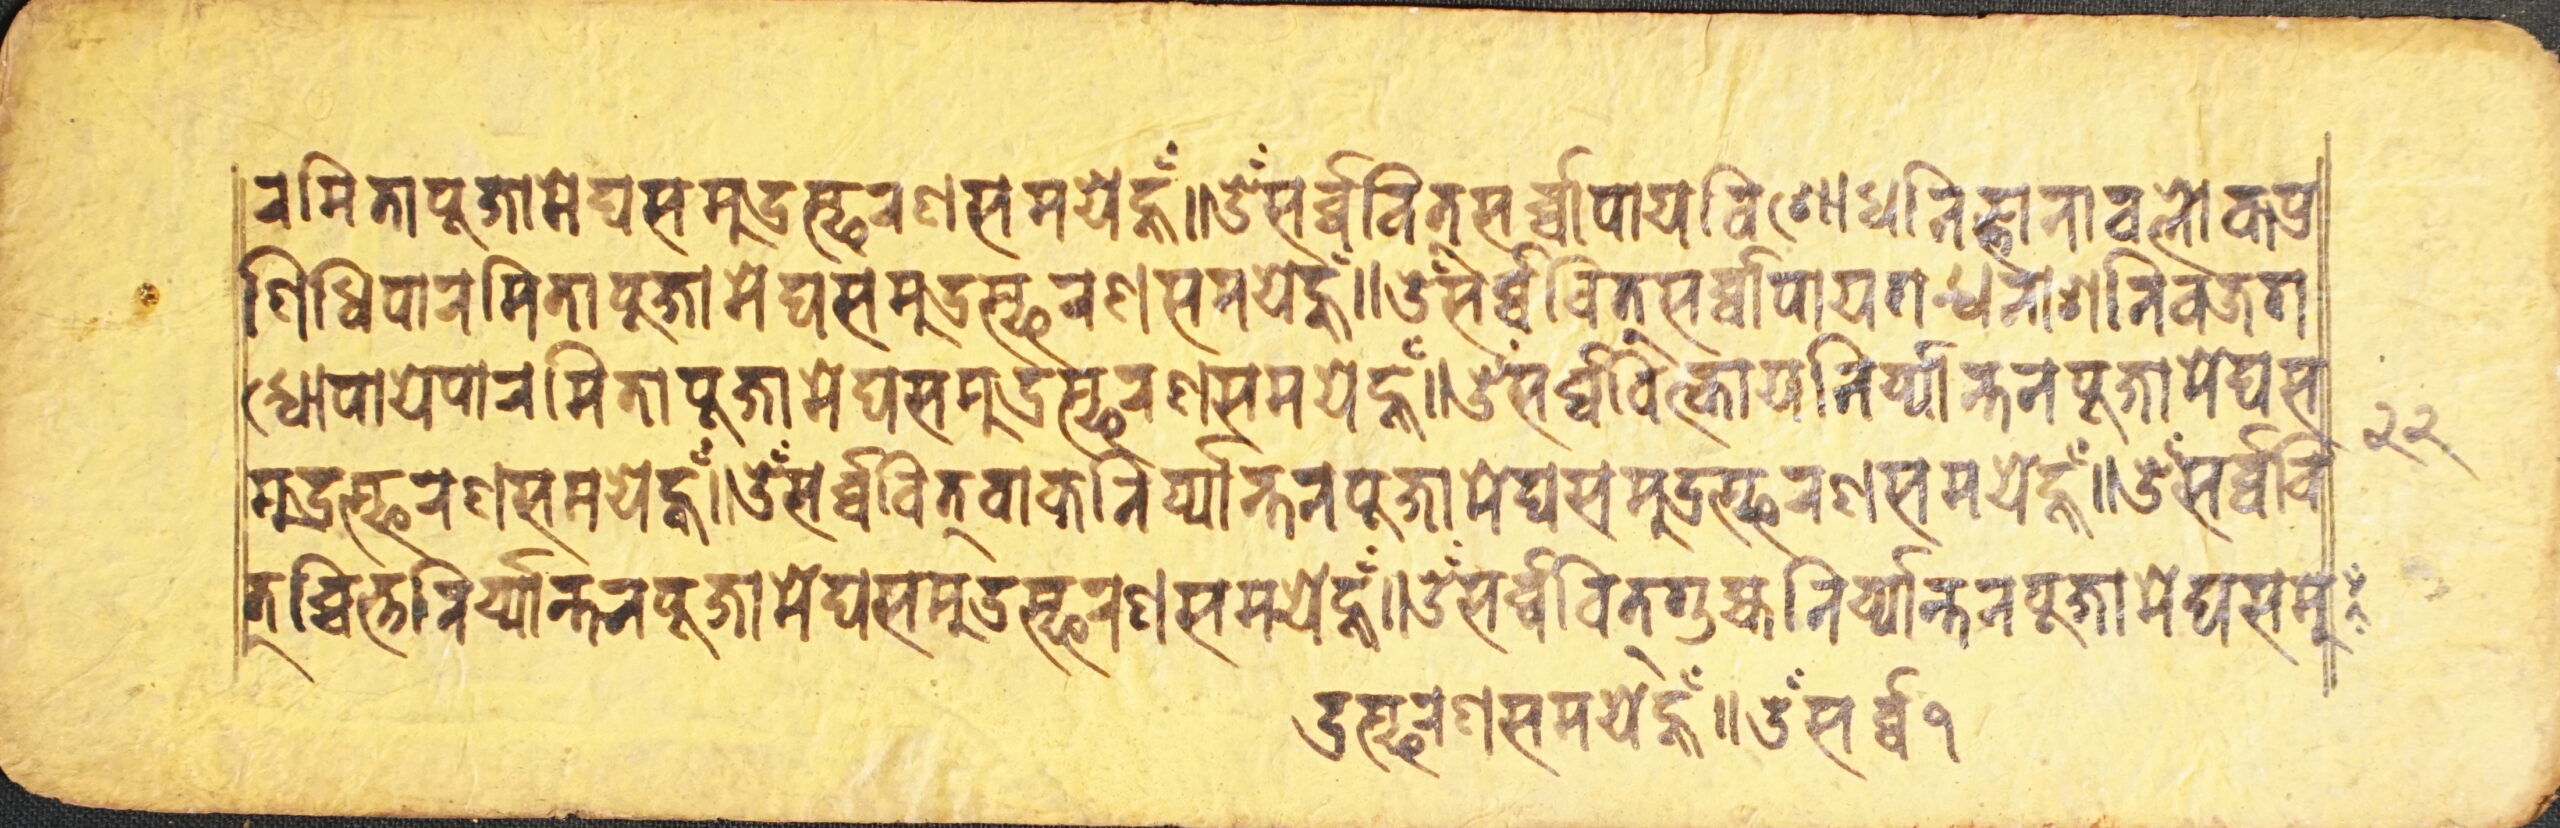 रमितापूजामेघसमुद्रस्फरणसमयेहूँ॥ॐसर्व्ववित्सर्व्वापायविशोधनिज्ञानावलोकप्र
णिधिपारमितापूजामेघसमुद्रस्फरणसमयेहूँ॥ॐसर्व्ववित्सर्व्वापायगन्धनाशनिवज्रग
न्धोपायेपारमितापूजामेघसमुद्रस्फरणसमयेहूँ॥ॐसर्व्ववित्कायनिर्य्यान्तनपूजामेघस
मुद्रस्फरणसमयेहूँ॥ॐसर्व्ववित्वाकनिर्य्यान्तनपूजामेघसमुद्रस्फरणसमयेहूँ॥ॐसर्व्ववि
त्चित्तनिर्य्यान्तनपूजामेघसमुद्रस्फरणसमयेहूँ॥ॐसर्व्ववित्गुह्यनिर्य्यान्तनपूजामेघसमु
द्रस्फरणसमयेहूँ॥ॐसर्व्व१
२२